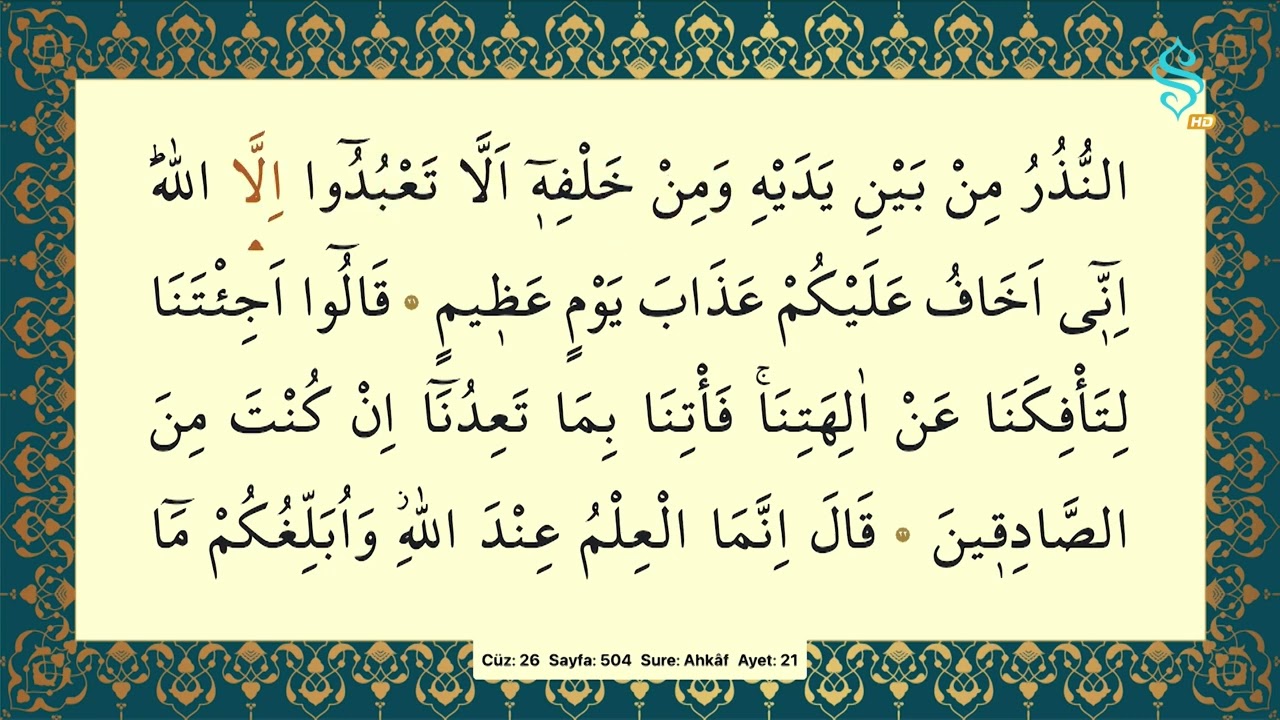 HD
النُّذُرُ مِنْ بَيْنِ يَدَيْهِ وَمِنْ خَلْفِه۪ٓ اَلَّا تَعْبُدُٓوا اِلَّا اللّٰهَۜ
اِنّ۪ٓي اَخَافُ عَلَيْكُمْ عَذَابَ يَوْمٍ عَظ۪يمٍ ٢١ قَالُٓوا اَجِئْتَنَا
لِتَأْفِكَنَا عَنْ اٰلِهَتِنَاۚ فَأْتِنَا بِمَا تَعِدُنَٓا اِنْ كُنْتَ مِنَ
الصَّادِق۪ينَ ٢٢ قَالَ اِنَّمَا الْعِلْمُ عِنْدَ اللّٰهِۘ وَاُبَلِّغُكُمْ مَٓا
Cüz: 26 Sayfa: 504 Sure: Ahkâf Ayet: 21